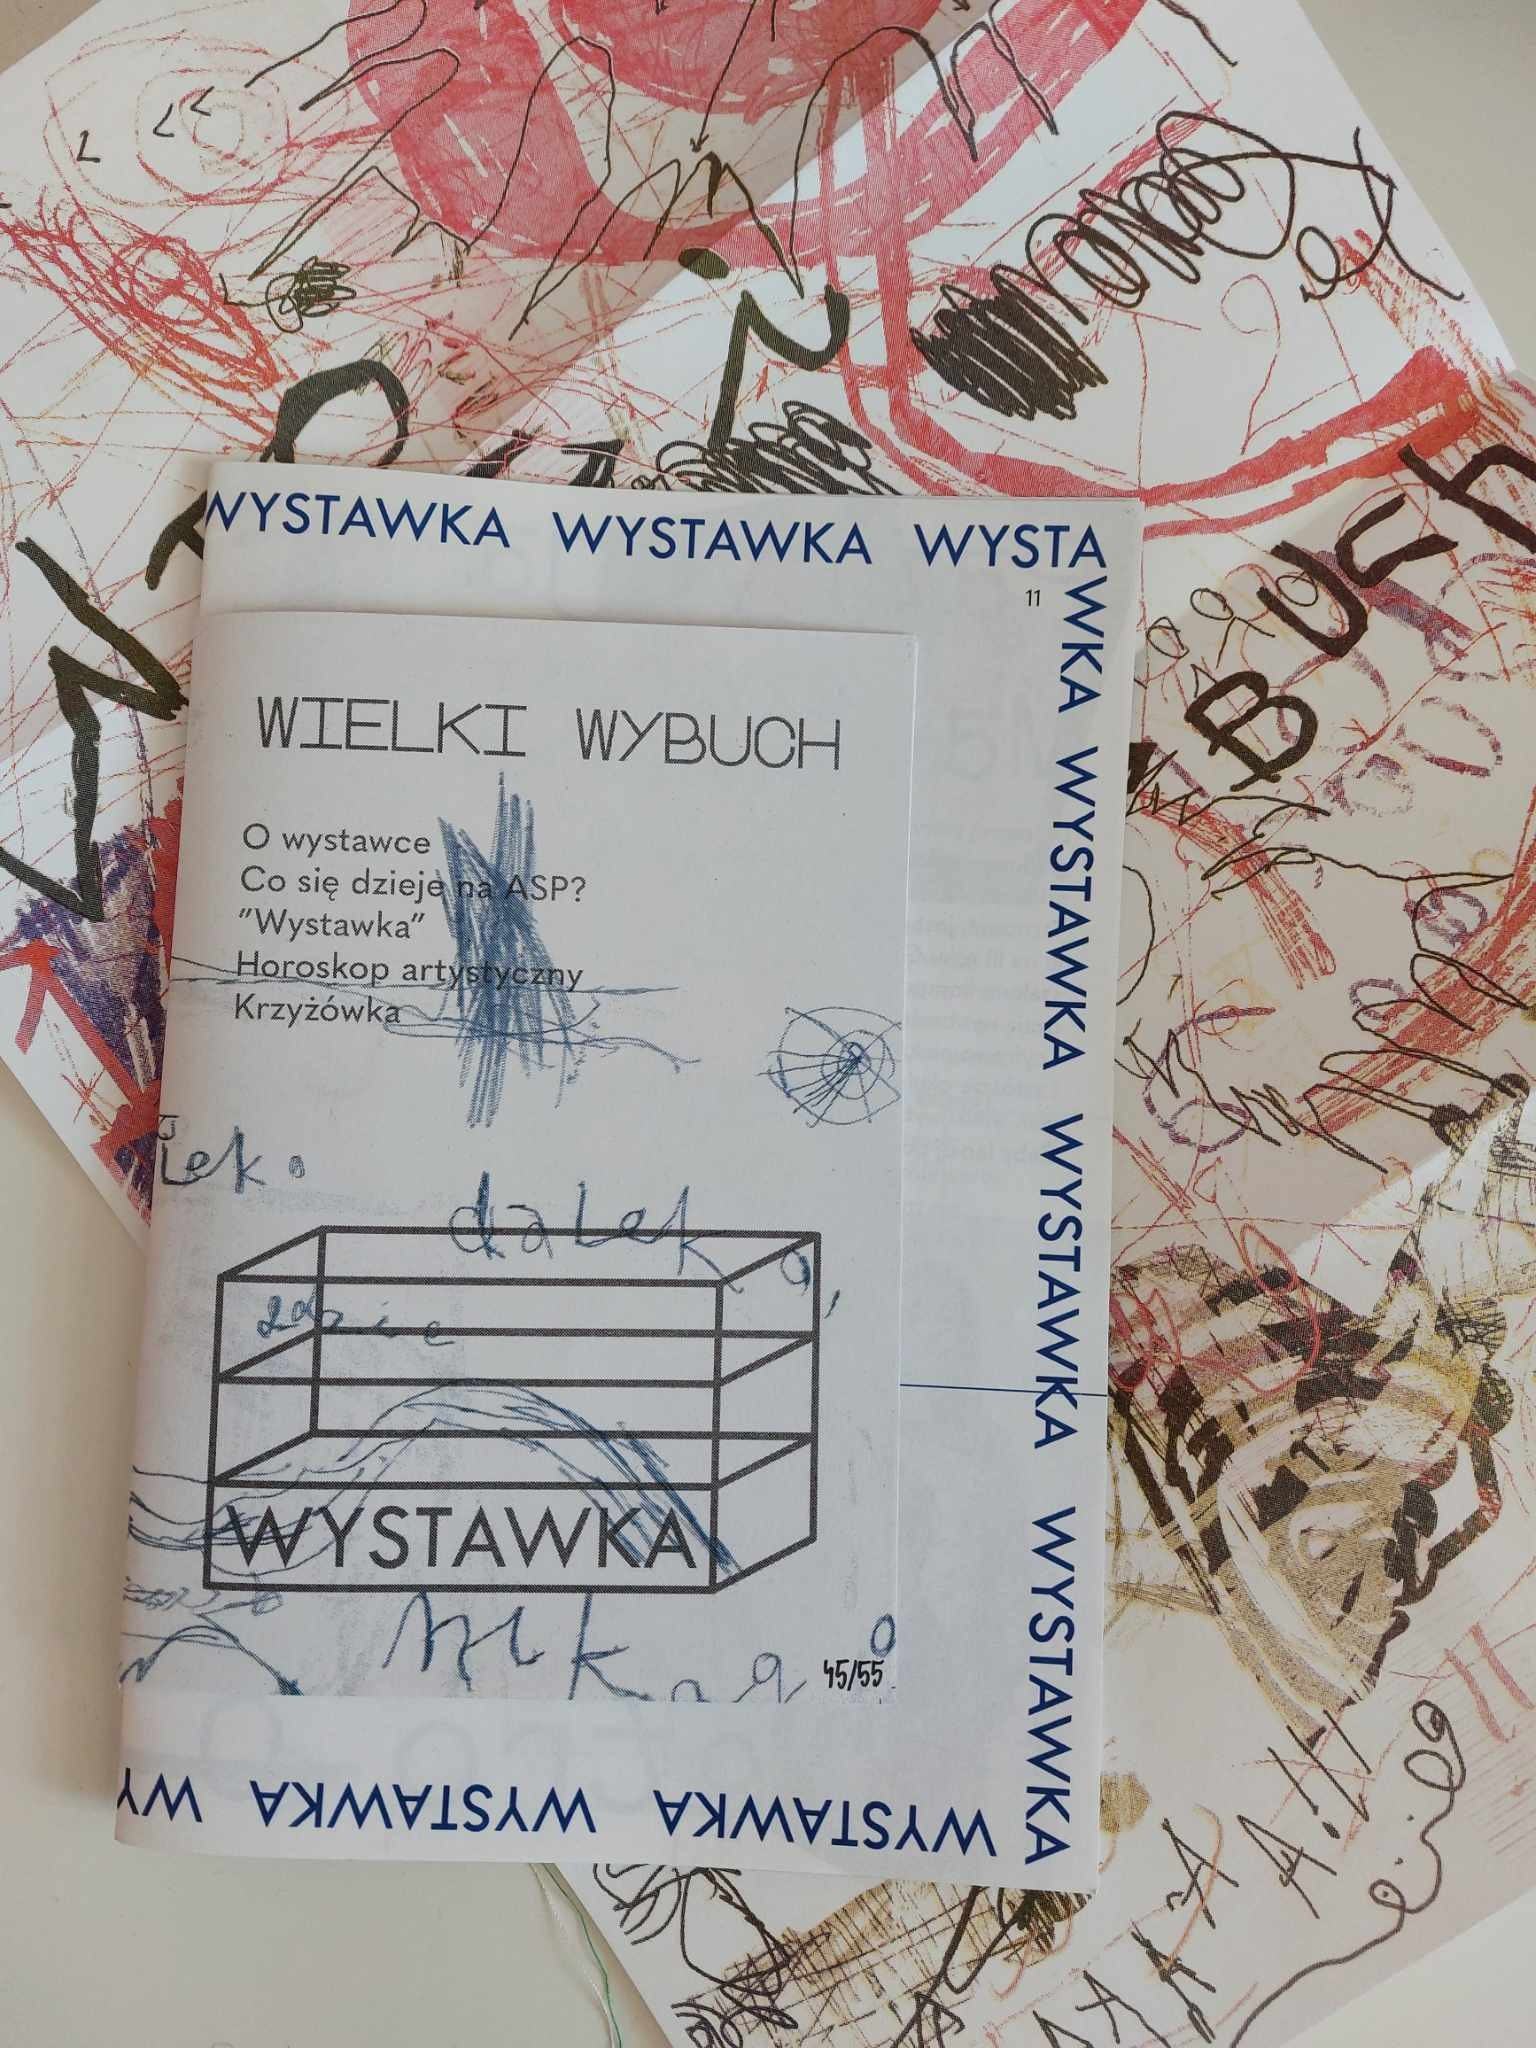 WYSTAWKA WYSTAWKA WYSTAWKA WYSTAWKA WYSTAWKA WYSTAWKA WYSTAWKA
11
WIELKI WYBUCH
O wystawce
Co się dzieje na ASP?
"Wystawka"
Horoskop artystyczny
Krzyżówka
lek.
dalek
gdzie
WYSTAWKA
45/55
WYSTAWKA WYSTAWKA WY
BUCH
AAAAA!!!